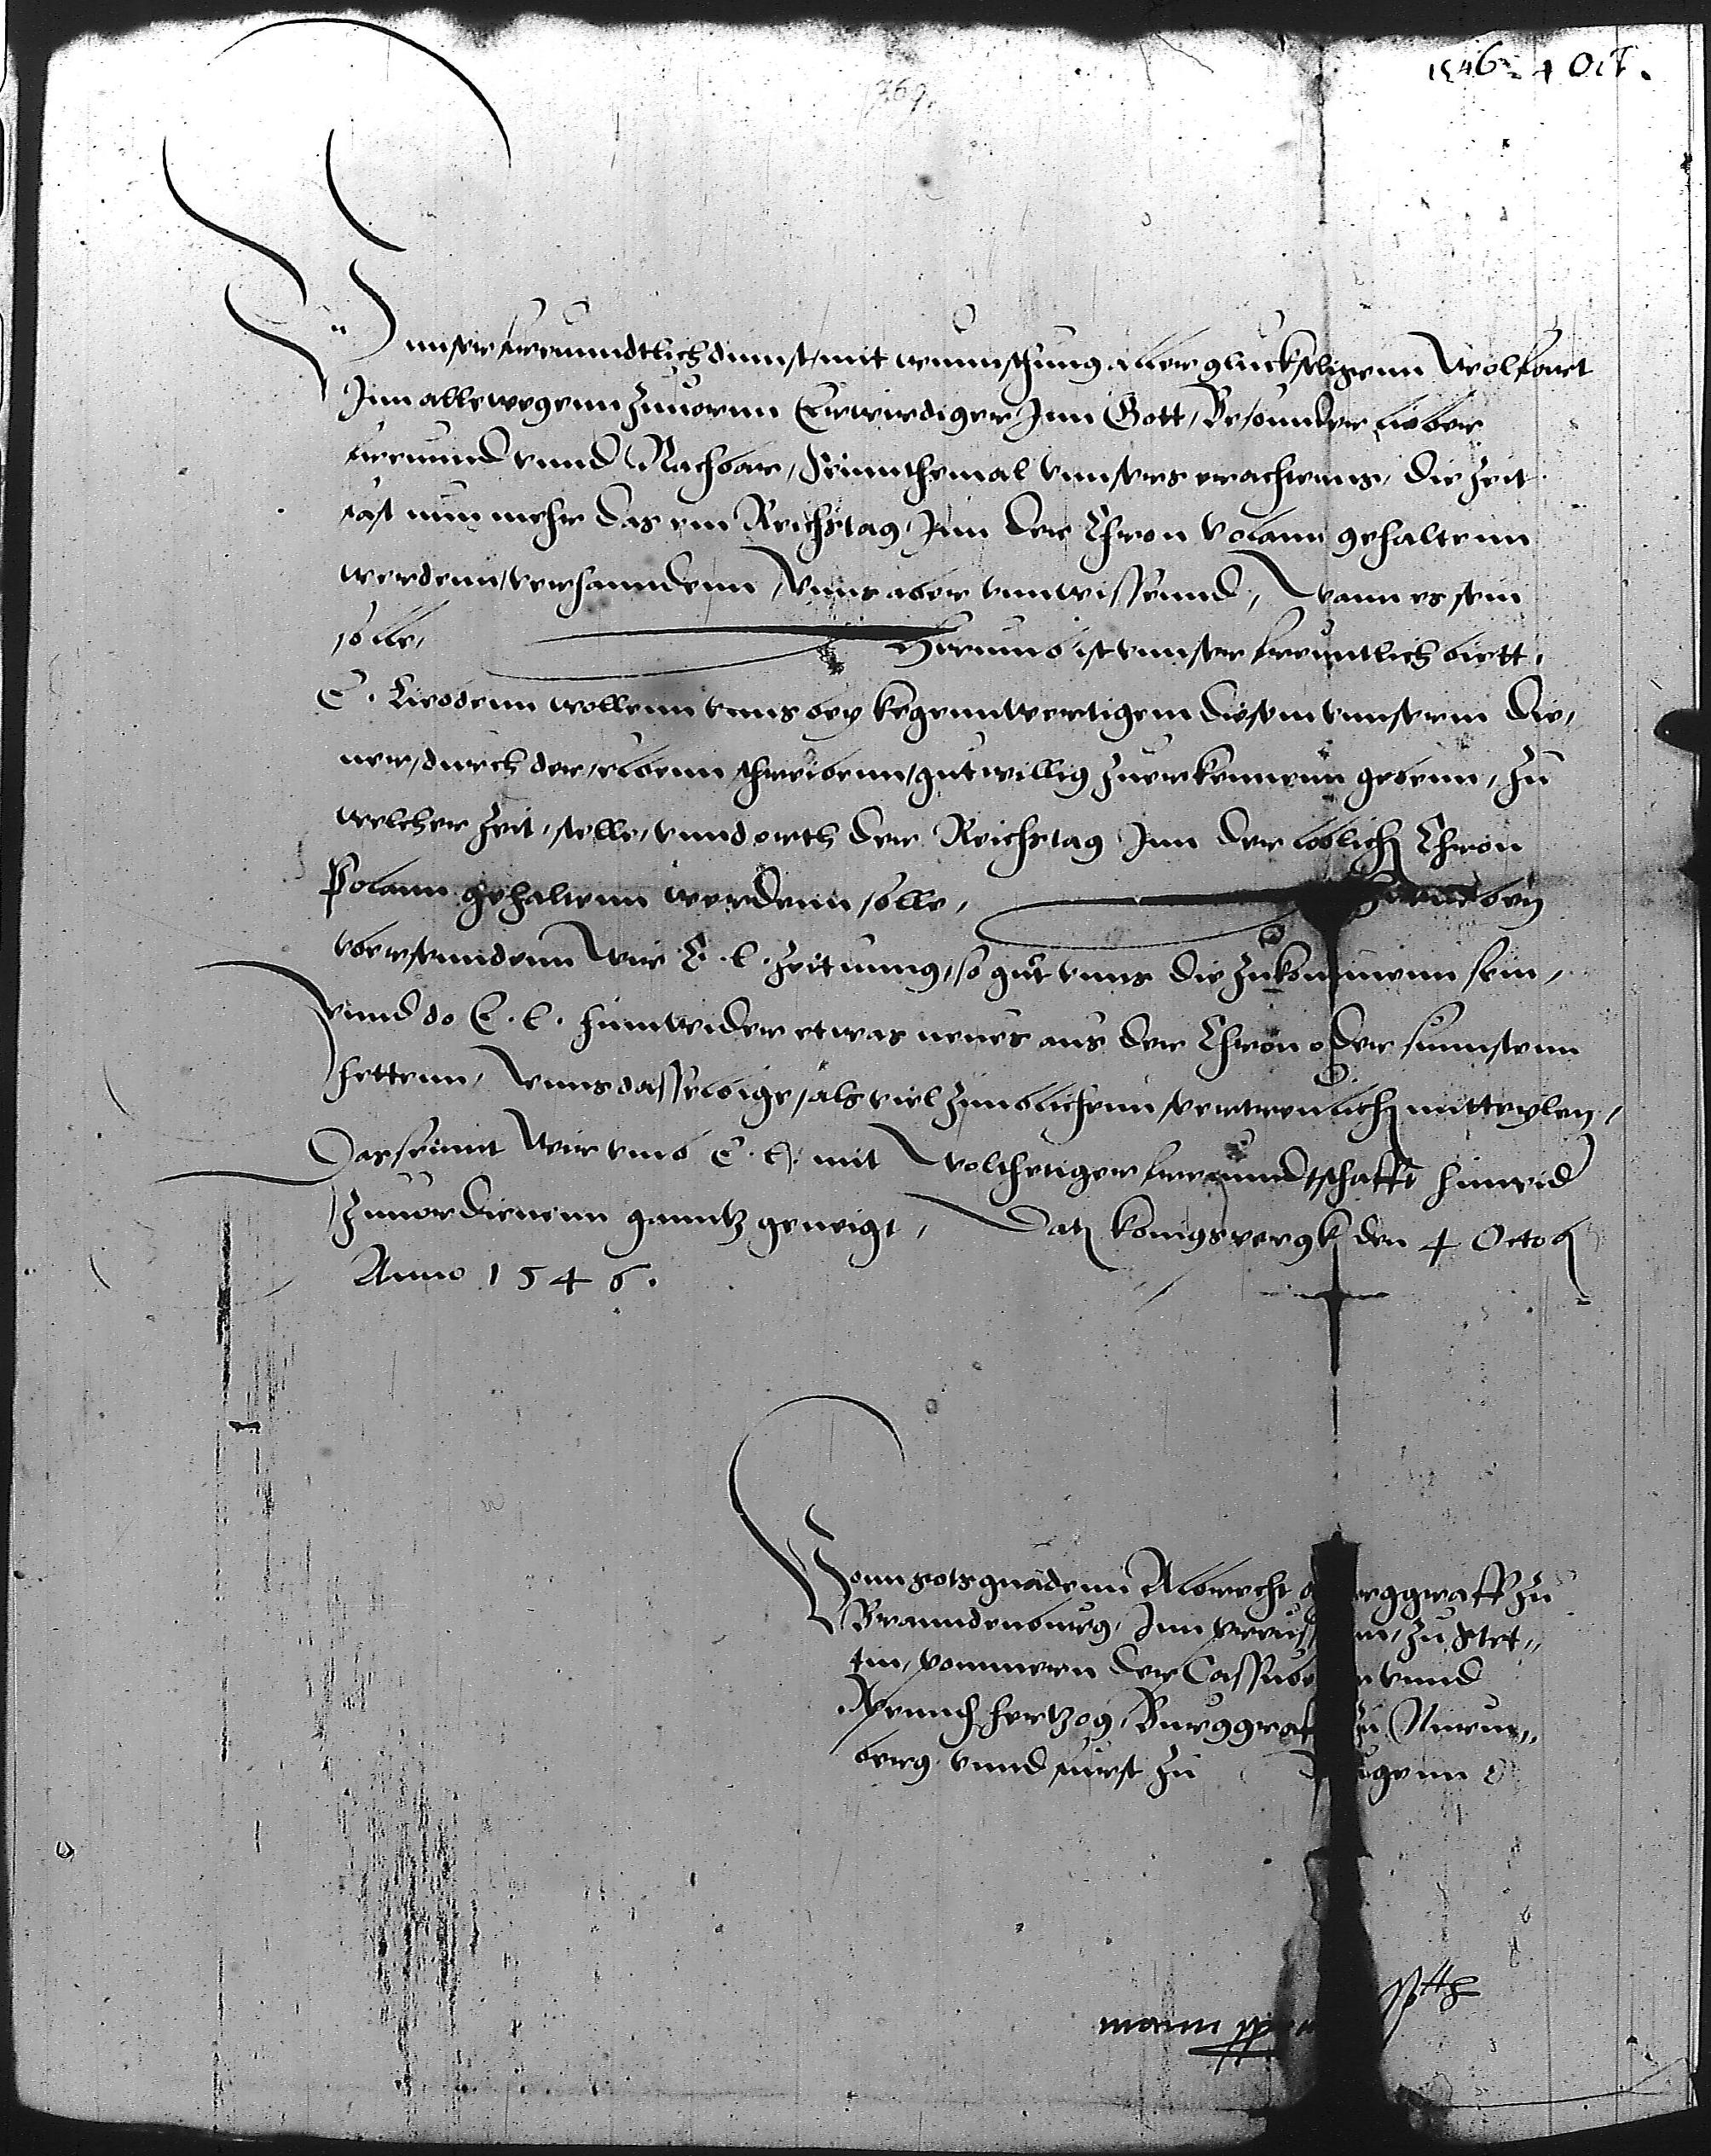 1546. 4 Oct.
369.
Vnnser freuundtlich dinnst, mit wunnschung aller gluckseligenn Wolfart
Inn allewegenn zuuornn Erwirdiger Inn Gott, Besounder lieber
freuund vnnd Nachbar, Seinnthemal vnnsers erachtenns, die Zeit
fast nun mehr das ein Reichstag, Inn der Chron Polann gehaltenn
werdenn, vorhanndenn, Vnns aber vnnwissennd, Wann es sein
solle, Hirumb ist vnnser freuntlich bitt,
E. Liebdenn wollenn vnns bey kegennwertigem diesem vnnserm die,
ner, durch der, selbenn schreibenn, gutwillig zuerkennenn gebenn, zu
welcher Zeit, stelle, vnnd orth der Reichstag Inn der loblichen Chron
Polann gehaltenn werdenn solle, Hirnebey
vbersenndenn Wir E. L. Zeitunng, so gut vnns die zukommenn sein,
vnnd do E. L. hinnwider etwas neues aus der Chron oder sunnstenn
hettenn, Vnns dasselbige, als viel zimblichenn, vertreulich mitteylen,
Das seinnt Wir vmb E. L. mit Wolthetiger freuundtschafft hinwid
Zuuordienenn ganntz geneigt, Datum Konigspergk den 4 Octob
Anno 1546.
Vonn gots gnadenn Albrecht erggraff zu
Branndenburg, Inn Preus enn, zu Stet,,
tin, Pommern der Cassube vnnd
Wennd hertzog, Burggraf zu Nurnn,,
berg vnnd furst zu Rugenn
mann ppria